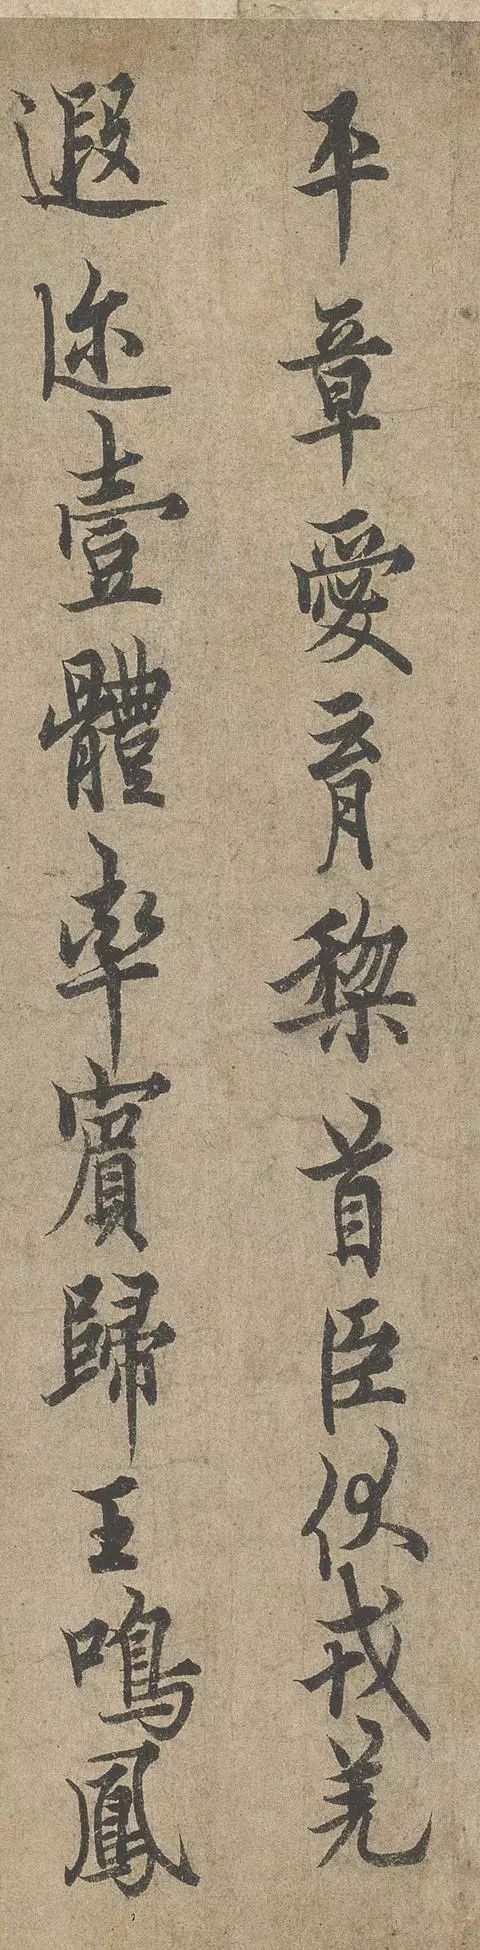 平章愛育黎首臣伏戎羌
遐迩壹體率賓歸王鳴鳳